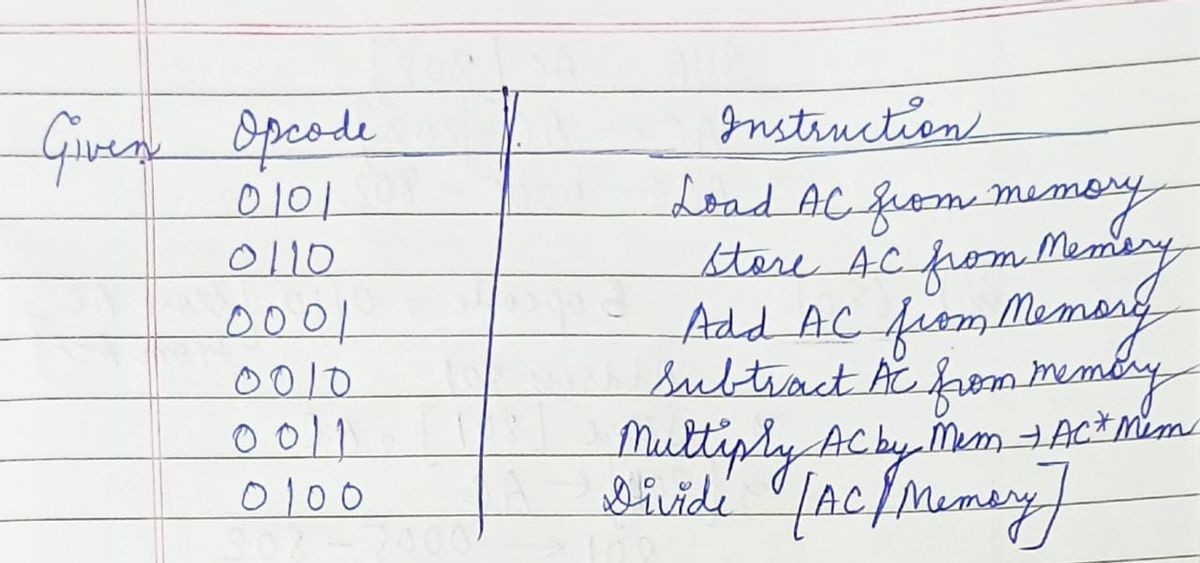 Given Opcode Instruction
0101 Load AC from memory
0110 Store AC from Memory
0001 Add AC from Memory
0010 Subtract AC from memory
0011 Multiply AC by Mem → AC*Mem
0100 Divide [AC/Memory]